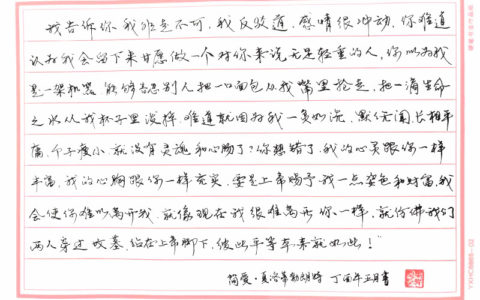 我告诉你我非走不可。我反驳道，感情很冲动，你难道
认为我会留下来甘愿做一个对你来说无足轻重的人，你以为我
是一架机器，能够容忍别人把一口面包从我嘴里抢走，把一滴生命
之水从我杯子里泼掉，难道就因为我一贫如洗，默默无闻，长相平
庸，个子瘦小，就没有灵魂和心肠了？你想错了，我的心灵跟你一样
丰富，我的心胸跟你一样充实，要是上帝赐予我一点姿色和财富，我
会使你难以离开我，就像现在我很难离开你一样，就仿佛我们
两人穿过坟墓，站在上帝脚下，彼此平等，本来就如此！”
简爱·夏洛蒂勃朗特 丁酉年五月书
YXHC8868-02